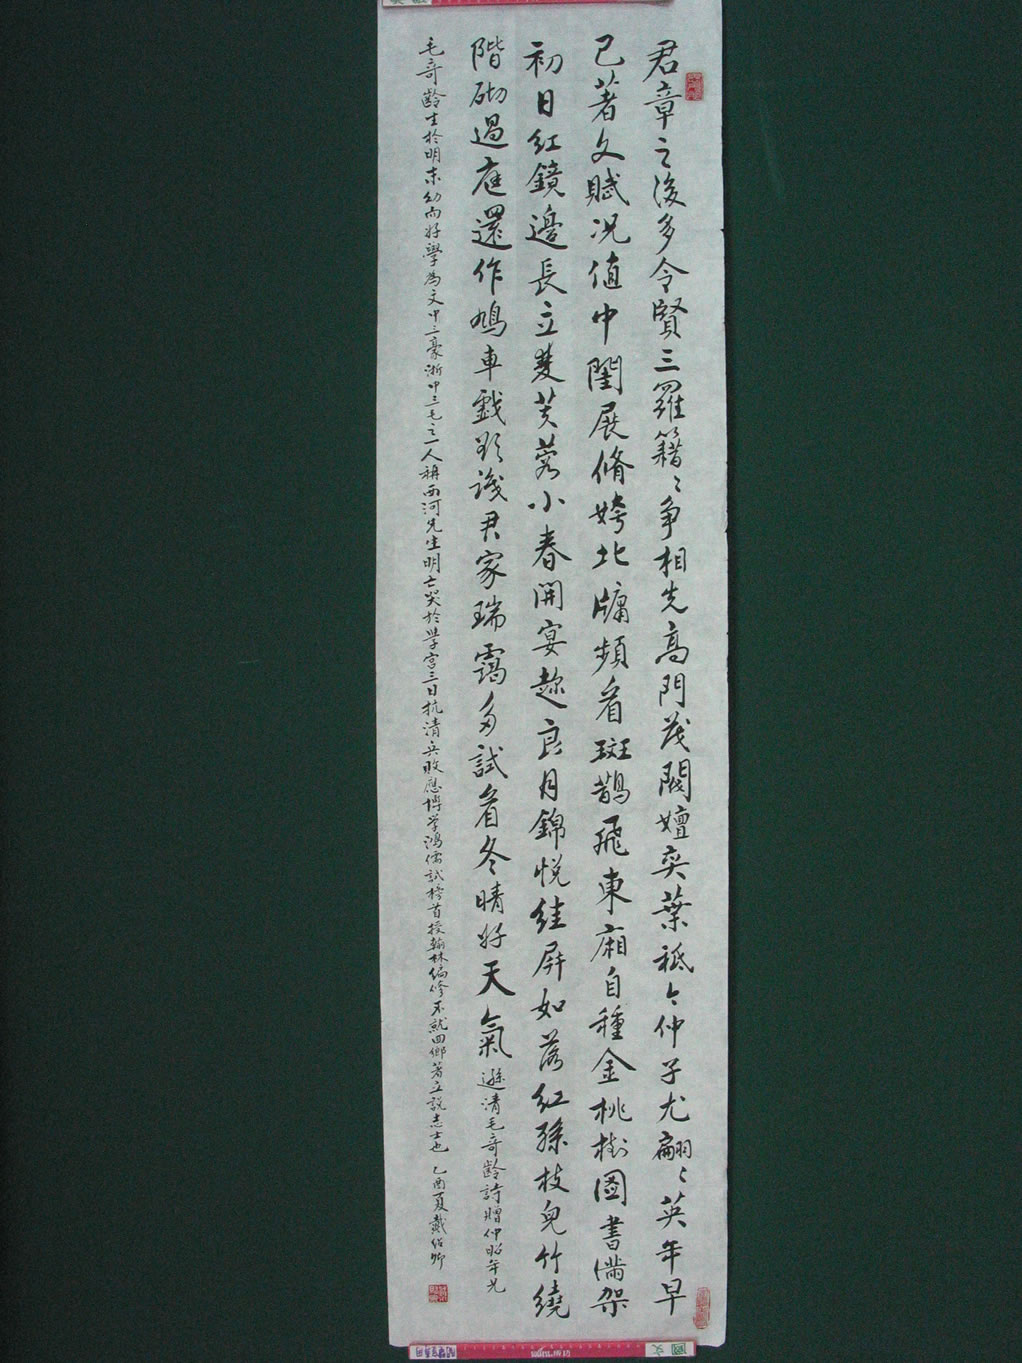 君章之後多令賢三羅籍〻爭相先高門茂閥嬗奕葉祗〻仲子尤翩〻英年早
已著文賦況值中閨展脩姱北牖頻看斑鵲飛東廂自種金桃樹圖書滿架
初日紅鏡邊長立雙芙蓉小春開宴趁良月錦帨絓屏如落紅孫枝皃竹繞
階砌過庭還作鳩車戲欣識君家瑞靄多試看冬晴好天氣 遜清毛奇齡詩贈仲昭年兄
毛奇齡生於明末幼而好學為文中三豪浙中三毛之一人稱西河先生明亡哭於学宮三日抗清兵敗應博学鴻儒試榜首授翰林編修不就回鄉著立說志士也 乙酉夏戴紹卿
國文